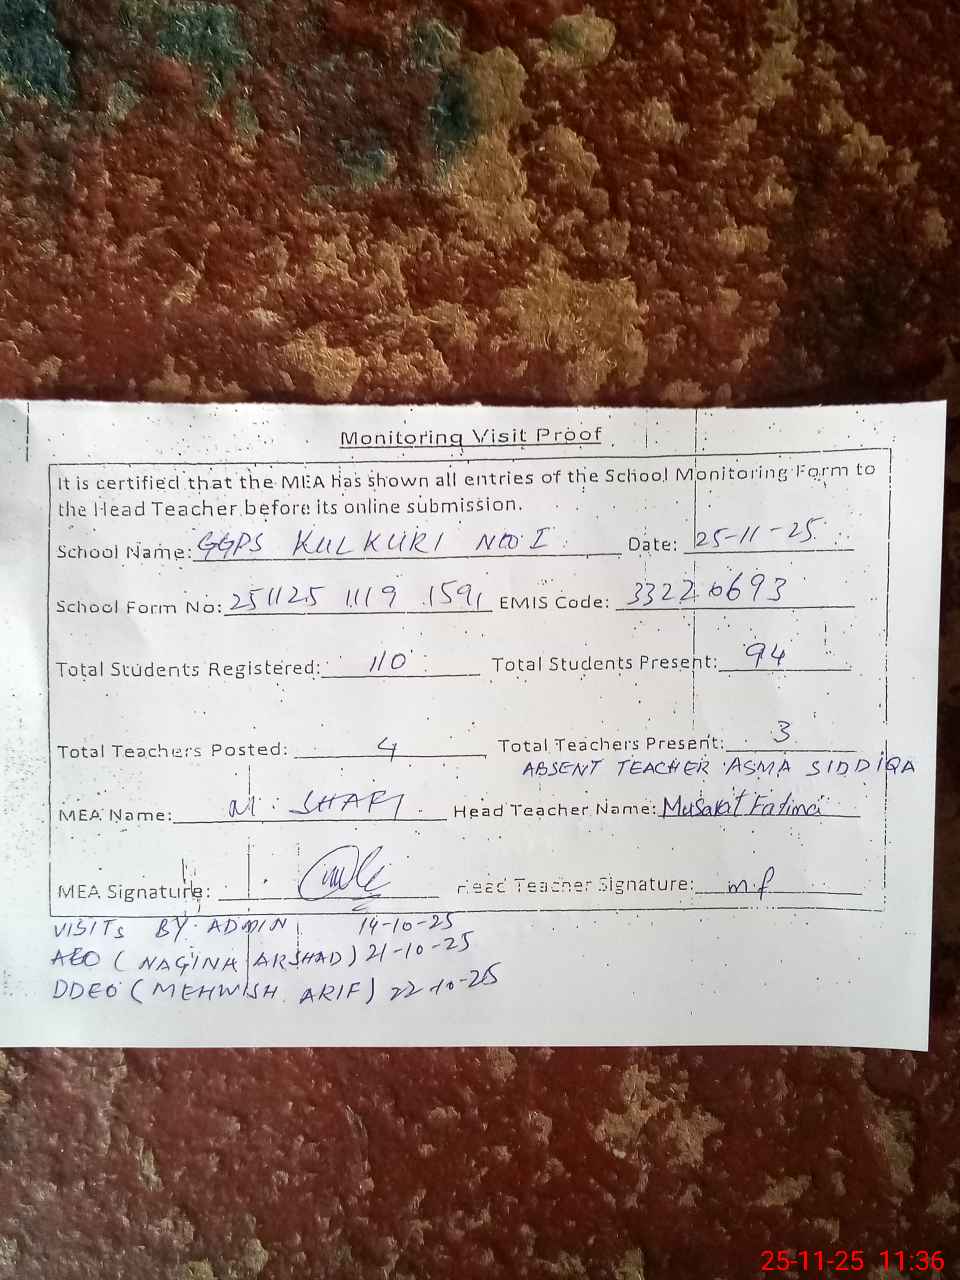 Monitoring Visit Proof
It is certified that the MEA has shown all entries of the School Monitoring Form to
the Head Teacher before its online submission.
School Name: GGPS KULKURI NO I Date: 25-11-25
School Form No: 251125 1119 1591 EMIS Code: 33220693
Total Students Registered: 110 Total Students Present: 94
Total Teachers Posted: 4 Total Teachers Present: 3
ABSENT TEACHER ASMA SIDDIQA
MEA Name: M. SHAFI Head Teacher Name: Musarat Fatima
MEA Signature: Head Teacher Signature: m.f
VISITS BY ADMIN 14-10-25
AEO (NAGINA ARSHAD) 21-10-25
DDEO (MEHWISH ARIF) 22-10-25
25-11-25 11:36